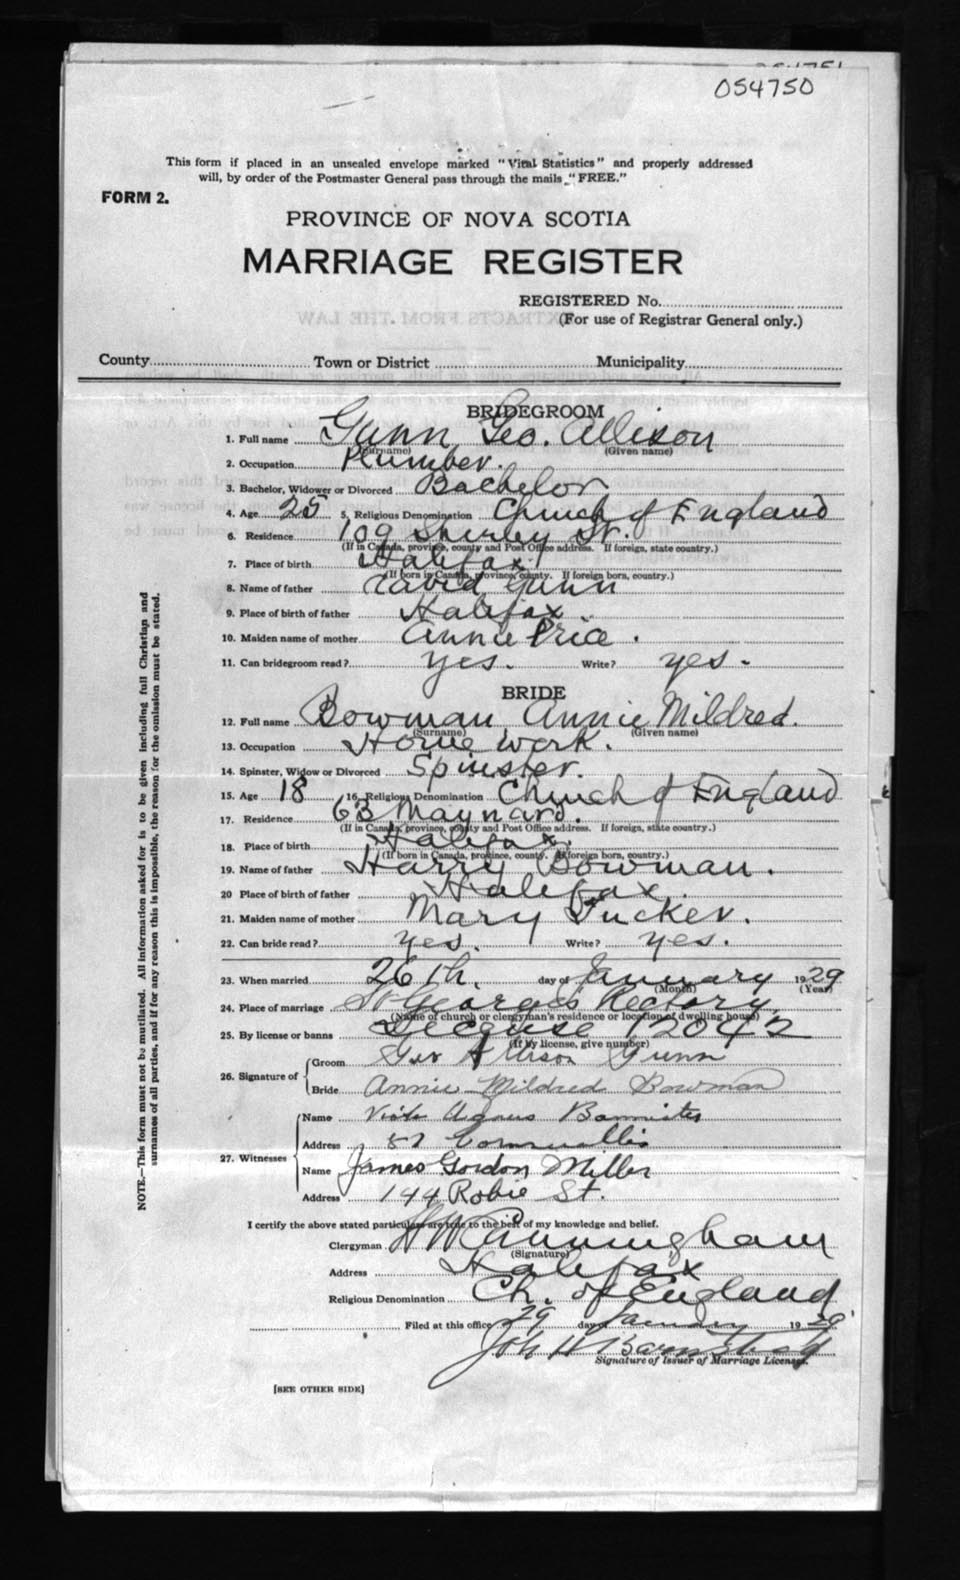 054751
054750
This form if placed in an unsealed envelope marked "Vital Statistics" and properly addressed
will, by order of the Postmaster General pass through the mails "FREE."
FORM 2.
PROVINCE OF NOVA SCOTIA
MARRIAGE REGISTER
REGISTERED No.
(For use of Registrar General only.)
County Town or District Municipality
BRIDEGROOM
1. Full name Gunn Geo. Allison
(Surname) (Given name)
2. Occupation Plumber.
3. Bachelor, Widower or Divorced Bachelor
4. Age 25 5. Religious Denomination Church of England
6. Residence 109 Shirley St.
(If in Canada, province, county and Post Office address. If foreign, state country.)
7. Place of birth Halifax
(If born in Canada, province, county. If foreign born, country.)
8. Name of father David Gunn
9. Place of birth of father Halifax
10. Maiden name of mother Annie Price.
11. Can bridegroom read? yes. Write? yes.
BRIDE
12. Full name Bowman Annie Mildred.
(Surname) (Given name)
13. Occupation Home work.
14. Spinster, Widow or Divorced Spinster.
15. Age 18 16. Religious Denomination Church of England
17. Residence 63 Maynard.
(If in Canada, province, county and Post Office address. If foreign, state country.)
18. Place of birth Halifax.
(If born in Canada, province, county. If foreign born, country.)
19. Name of father Harry Bowman.
20 Place of birth of father Halifax.
21. Maiden name of mother Mary Tucker.
22. Can bride read? yes. Write? yes.
23. When married 26th. day of January 1929
(Month) (Year)
24. Place of marriage St Georges Rectory
(Name of church or clergyman's residence or location of dwelling house)
25. By license or banns License 12042
(If by license, give number)
26. Signature of Groom Geo Allison Gunn
Bride Annie Mildred Bowman
27. Witnesses Name Viola Agnus Bannister
Address 57 Cornwallis
Name James Gordon Miller
Address 144 Robie St.
I certify the above stated particulars are true to the best of my knowledge and belief.
Clergyman H W Cunningham
(Signature)
Address Halifax
Religious Denomination Ch. of England
Filed at this office 29 day of January 1929
Signature of Issuer of Marriage Licenses.
[SEE OTHER SIDE]
NOTE.—This form must not be mutilated. All information asked for is to be given including full Christian and
surnames of all parties, and if for any reason this is impossible, the reason for the omission must be stated.